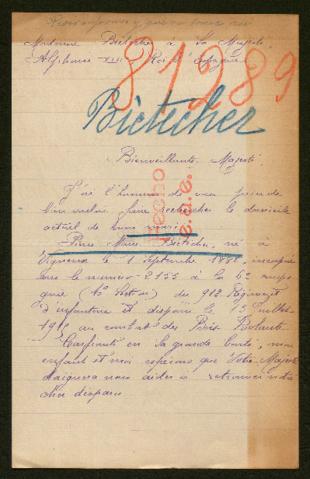 Madame Bietcher à Sa Majesté
Alphonse XIII Roi d'Espagne
81989
Bietcher
Bienveillante Majesté
J'ai l'honneur de vous prier de
bien vouloir faire rechercher le domicile
actuel de mon mari
Pierre Marie Bietcher, né à
le 1 Septembre 1881,
sous le numéro 2155 à la 6e compa
gnie du 912 Régiment
d'infanterie et disparu le 15 Juillet
1918 au combat du Bois
Confiante en la grande bonté, mon
enfant et moi espérons que Votre Majesté
daignera nous aider à retrouver notre
cher disparu
Hecho
s.a.e.